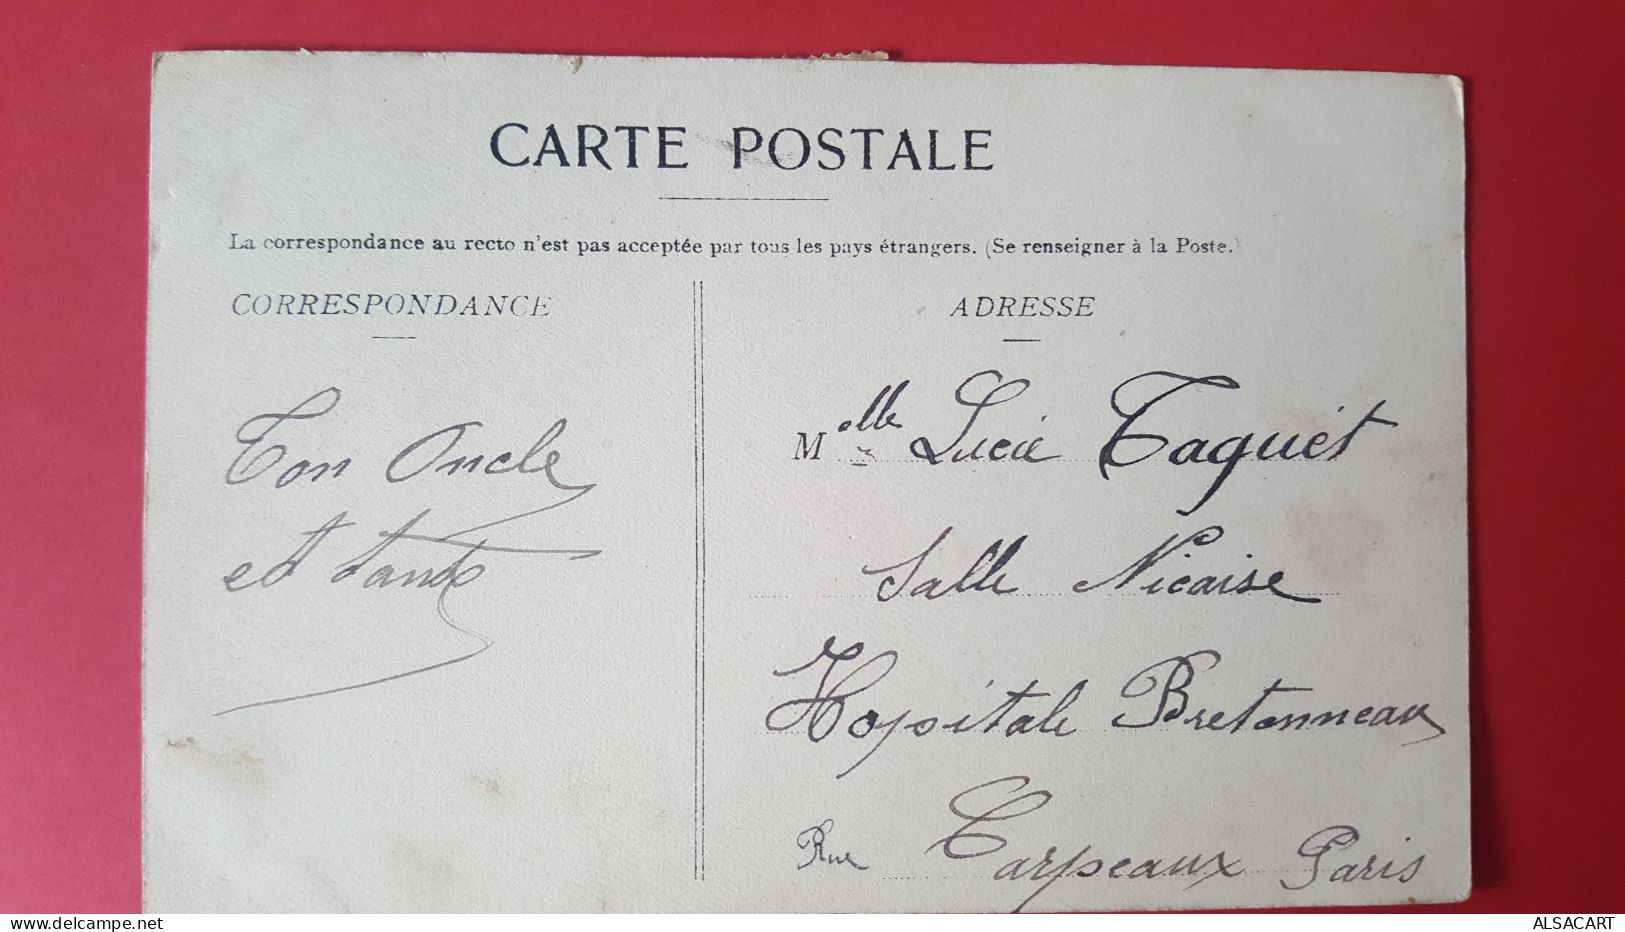 CARTE POSTALE
La correspondance au recto n'est pas acceptée par tous les pays étrangers. (Se renseigner à la Poste.)
CORRESPONDANCE
Ton Oncle
et tante
ADRESSE
Melle Lucie Taquet
Salle Nicaise
Hopitale Bretonneau
Rue Carpeaux Paris
www.delcampe.net
ALSACART